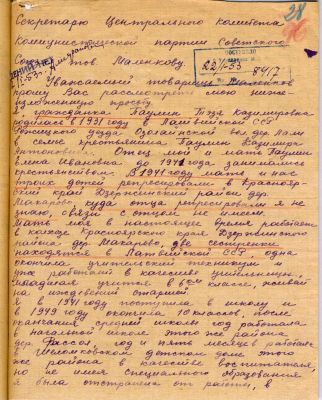 28
Секретарю Центрального Комитета
Коммунистической партии Советского
Союза тов. Маленкову.
22/V-53
8417
Уважаемый товарищ Маленков
прошу Вас рассмотреть мою ниже-
изложенную просьбу
Я, гражданка Паулин Тэзя Казимировна
родилась в 1931 году Латвийской ССР
уезда, Озолайской вол. дер. Лали
в семье крестьянина Паулин Казимира
Антоновича. Отец мой и мать Паулин
Елена Ивановна до 1941 года занимались
крестьянством. В 1941 году мать и нас
троих детей репрессировали в Краснояр-
ский край Дзержинский район дер.
Макарово, куда отца репрессировали я не
знаю, связи с отцом не имеем.
Мать моя в настоящее время работает
в колхозе Красноярского края Дзержинского
района дер. Макарово, две сестренки
находятся в Латвийской ССР одна
окончила учительский техникум и
уже работает в качестве учительницы,
младшая учится в классе, живет
на иждивении старшей.
Я в 1941 году поступила в школу и
в 1949 году окончила 10 классов, после
окончания средней школы год работала
в начальной школе этого же района
дер. Фассол, год и пять месяцев работала
в Шеломковском детском доме этого
же района в качестве воспитателя,
но не имея специального образования
я была отстранена от работы, в